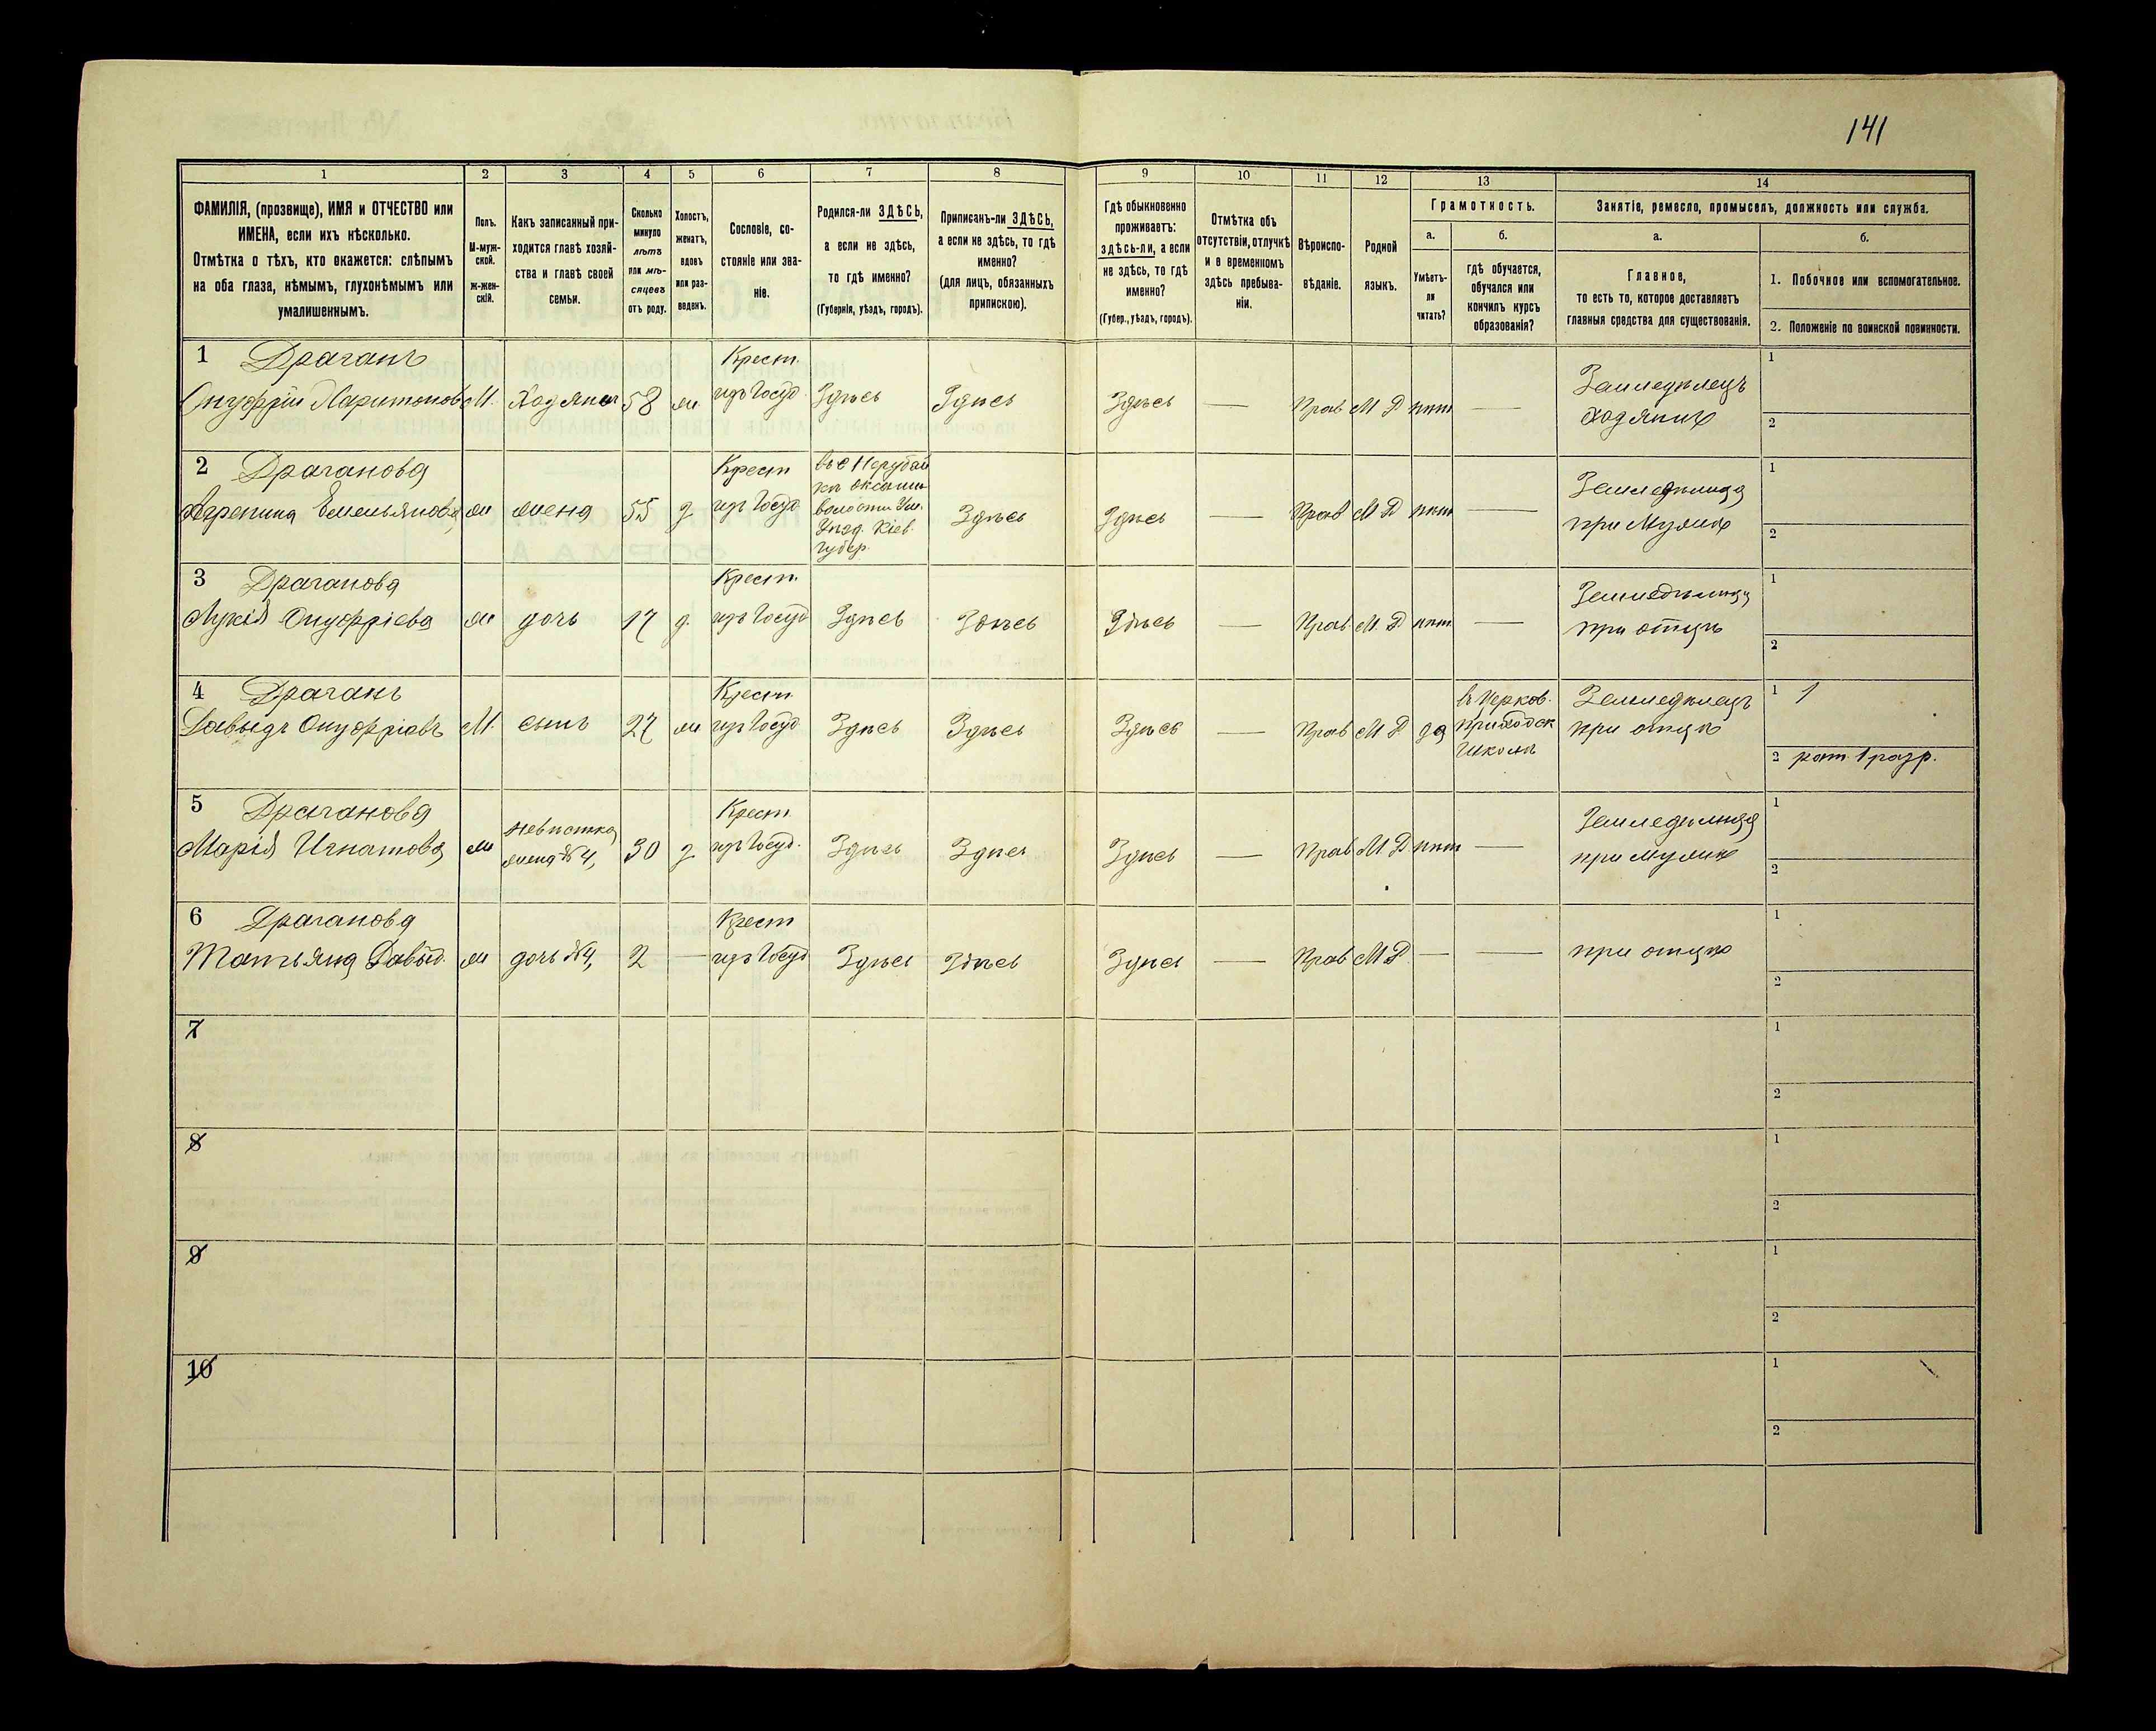 141
1 2 3 4 5 6 7 8 9 10 11 12 13 14
ФАМИЛІЯ, (прозвище), ИМЯ и ОТЧЕСТВО или
ИМЕНА, если ихъ нѣсколько.
Отмѣтка о тѣхъ, кто окажется: слѣпымъ
на оба глаза, нѣмымъ, глухонѣмымъ или
умалишеннымъ.
Полъ.
М-муж-
ской.
ж-жен-
скій.
Какъ записанный при-
ходится главѣ хозяй-
ства и главѣ своей
семьи.
Сколько
минуло
лѣтъ
или мѣ-
сяцевъ
отъ роду.
Холостъ,
женатъ,
вдовъ
или раз-
веденъ.
Сословіе, со-
стояніе или зва-
ніе.
Родился-ли ЗДѢСЬ,
а если не здѣсь,
то гдѣ именно?
(Губернія, уѣздъ, городъ).
Приписанъ-ли ЗДѢСЬ,
а если не здѣсь, то гдѣ
именно?
(для лицъ, обязанныхъ
припискою).
Гдѣ обыкновенно
проживаетъ:
здѣсь-ли, а если
не здѣсь, то гдѣ
именно?
(Губер., уѣздъ, городъ).
Отмѣтка объ
отсутствіи, отлучкѣ
и о временномъ
здѣсь пребыва-
ніи.
Вѣроиспо-
вѣданіе.
Родной
языкъ.
Грамотность.
а.
Умѣетъ-
ли
читать?
б.
гдѣ обучается,
обучался или
кончилъ курсъ
образованія?
Занятіе, ремесло, промыселъ, должность или служба.
а.
Главное,
то есть то, которое доставляетъ
главныя средства для существованія.
б.
1. Побочное или вспомогательное.
2. Положеніе по воинской повинности.
1 Драганъ
Онуфрій Харитоновъ М. Хозяинъ 58 ж
Крест.
изъ Госуд Здѣсь Здѣсь Здѣсь — Прав М Р нѣт —
Земледѣлецъ
хозяинъ
1
2
2 Драганова
Агрепина Емельянова ж жена 55 з
Крест
изъ Госуд
въ с Нерубай
ки
волости Ум.
Уѣзд. Кіев.
Губер.
Здѣсь Здѣсь — Прав М Р нѣт —
Земледѣлица
при Мужѣ
1
2
3 Драганова
Лукія Онуфріева ж дочь 17 д.
Крест.
изъ Госуд Здѣсь Здѣсь Здѣсь — Прав М. Р. нѣт —
Земледѣлица
при отцѣ
1
2
4 Драганъ
Давыдъ Онуфріевъ М. сынъ 27 ж
Крест
изъ Госуд Здѣсь Здѣсь Здѣсь — Прав М Р да
въ Церков.
приходск
школѣ
Земледѣлецъ
при отцѣ
1 1
2 рат. 1 разр.
5 Драганова
Марія Игнатова ж
невѣстка
жена №4, 30 з
Крест
изъ Госуд. Здѣсь Здѣсь Здѣсь — Прав М Р нѣт —
Земледѣлица
при мужѣ
1
2
6 Драганова
Татьяна Давыд. ж дочь №4, 2 —
Крест
изъ Госуд Здѣсь Здѣсь Здѣсь — Прав М Р — —
при отцѣ
1
2
7
1
2
8
1
2
9
1
2
10
1
2